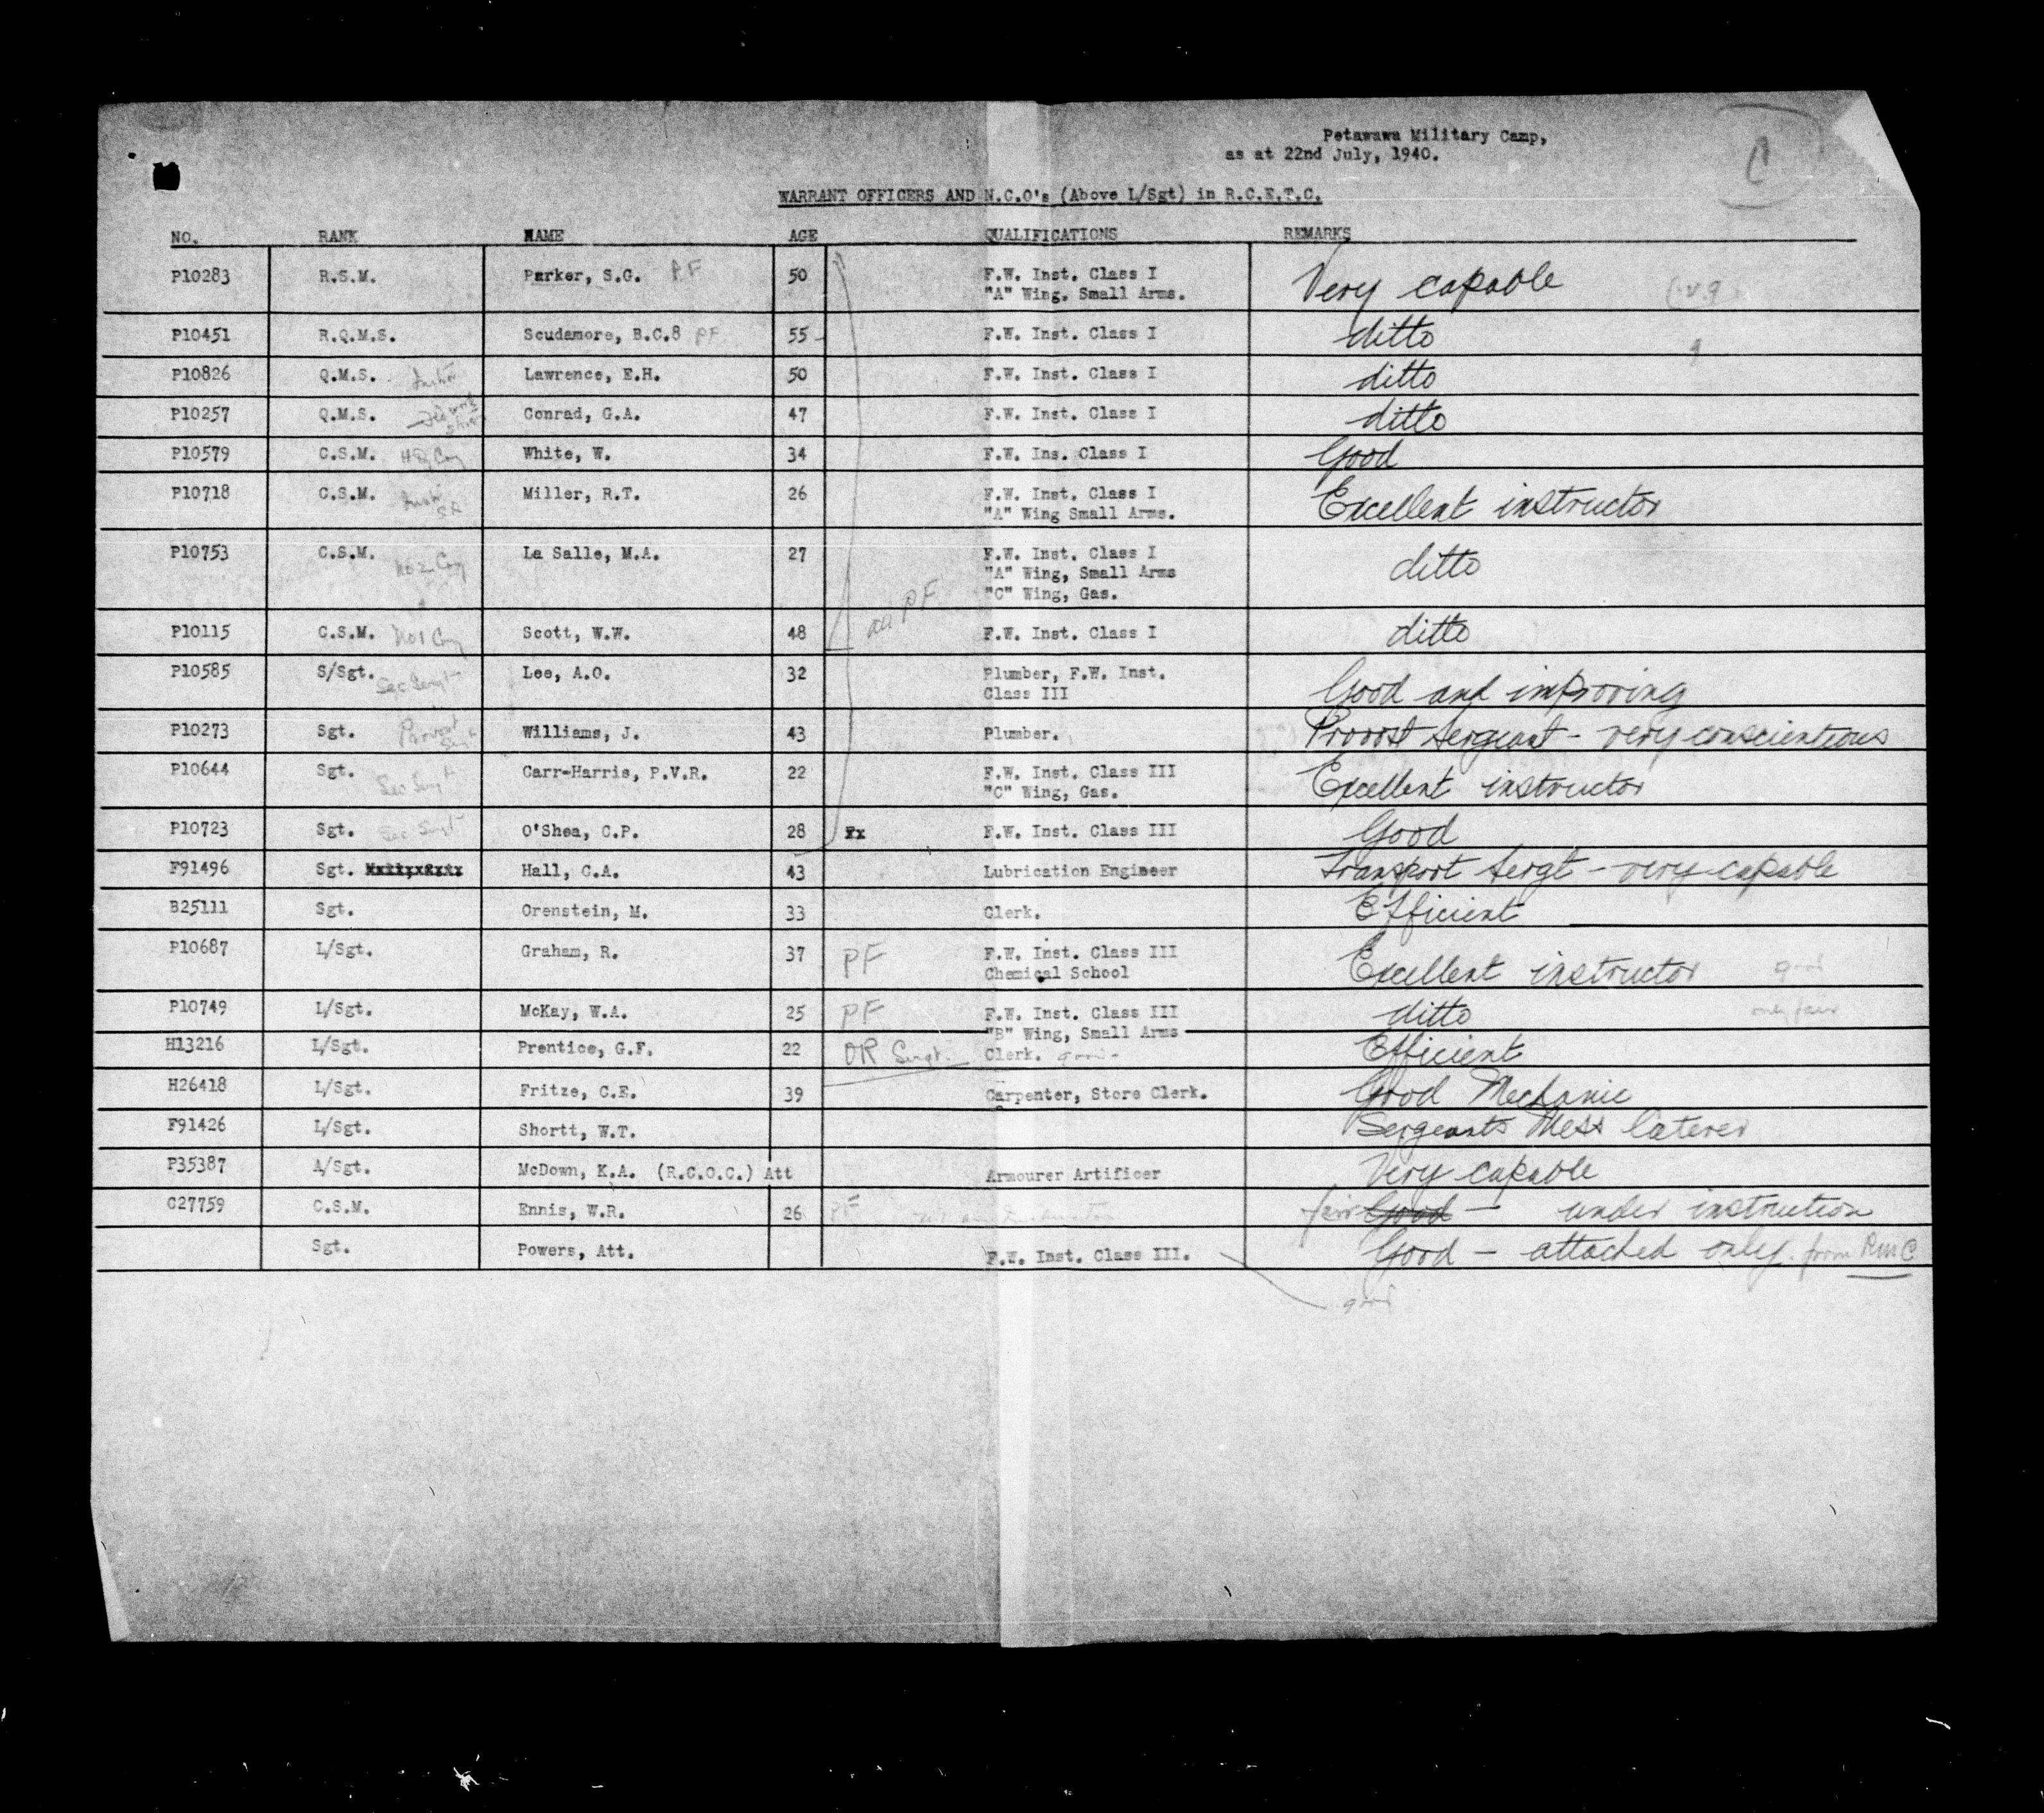 Petawawa Military Camp,
as at 22nd July, 1940.
C
WARRANT OFFICERS AND N.C.O's (Above L/Sgt) in R.C.E.T.C.
NO. RANK NAME AGE QUALIFICATIONS REMARKS
P10283 R.S.M. Parker, S.G. PF 50 F.W. Inst. Class I Very capable
"A" Wing, Small Arms.
P10451 R.Q.M.S. Scudamore, B.C.8 PF 55 F.W. Inst. Class I ditto
P10826 Q.M.S. Lawrence, E.H. 50 F.W. Inst. Class I ditto
P10257 Q.M.S. Conrad, G.A. 47 F.W. Inst. Class I ditto
P10579 C.S.M. HQ Coy White, W. 34 F.W. Ins. Class I Good
P10718 C.S.M. Miller, R.T. 26 F.W. Inst. Class I Excellent instructor
"A" Wing Small Arms.
P10753 C.S.M. No 2 Coy La Salle, M.A. 27 F.W. Inst. Class I ditto
"A" Wing, Small Arms
"C" Wing, Gas.
all PF
P10115 C.S.M. No 1 Coy Scott, W.W. 48 F.W. Inst. Class I ditto
P10585 S/Sgt. Sec Sergt Lee, A.O. 32 Plumber, F.W. Inst. Good and improving
Class III
P10273 Sgt. Provost Sergt Williams, J. 43 Plumber. Provost Sergeant - very conscientious
P10644 Sgt. Sec Sergt Carr-Harris, P.V.R. 22 F.W. Inst. Class III Excellent instructor
"C" Wing, Gas.
P10723 Sgt. Sec Sergt O'Shea, C.P. 28 Fx F.W. Inst. Class III Good
F91496 Sgt. Hall, C.A. 43 Lubrication Engineer Transport Sergt - very capable
B25111 Sgt. Orenstein, M. 33 Clerk. Efficient
P10687 L/Sgt. Graham, R. 37 PF F.W. Inst. Class III Excellent instructor good
Chemical School
P10749 L/Sgt. McKay, W.A. 25 PF F.W. Inst. Class III ditto only fair
"B" Wing, Small Arms
H13216 L/Sgt. Prentice, G.F. 22 OR Sergt. Clerk. good Efficient
H26418 L/Sgt. Fritze, C.E. 39 Carpenter, Store Clerk. Good Mechanic
F91426 L/Sgt. Shortt, W.T. Sergeants Mess Caterer
P35387 A/Sgt. McDown, K.A. (R.C.O.C.) Att Armourer Artificer Very capable
C27759 C.S.M. Ennis, W.R. 26 PF fair Good - under instruction
Sgt. Powers, Att. F.W. Inst. Class III. Good - attached only. from RMC
good